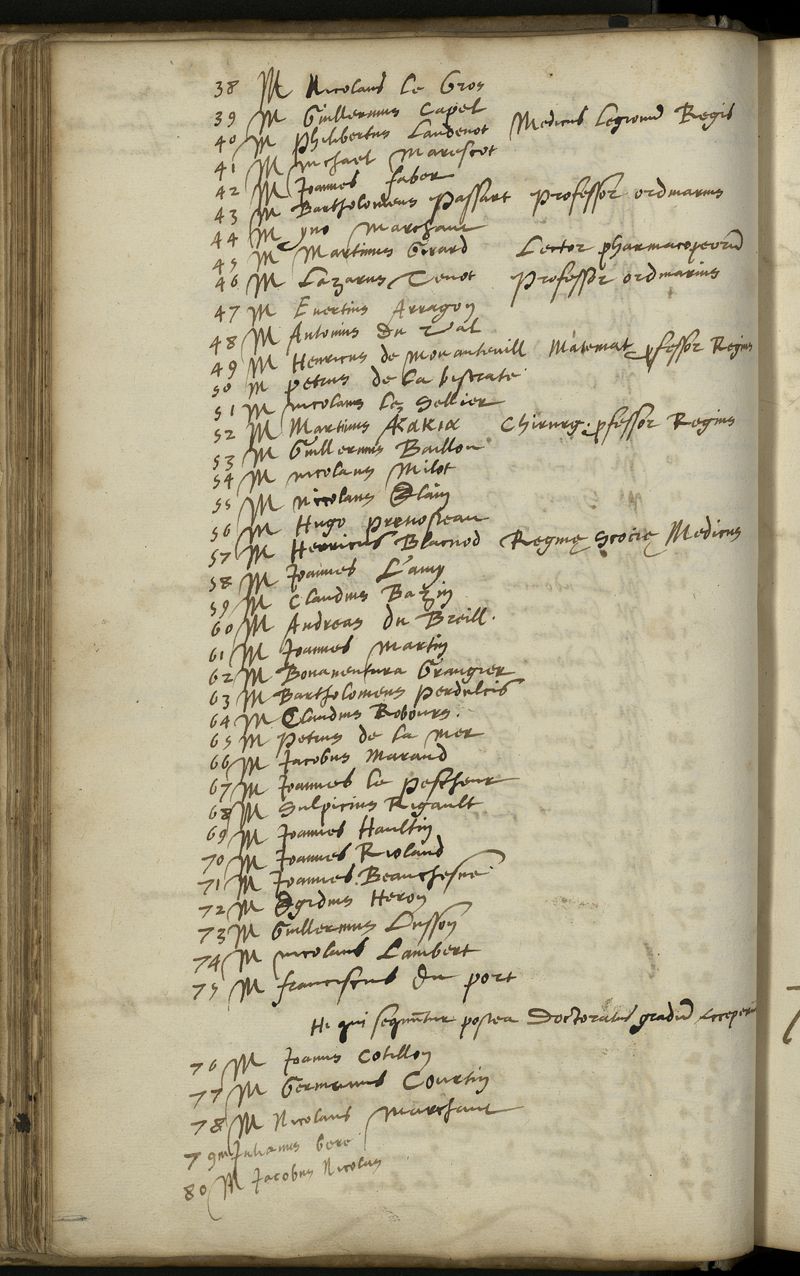 38 M Nicolaus Le Gros
39 M Guillermus Capel
40 M Philibertus Laubenot Medicus Legionū Regis
41 M Michael Marescot
42 M Joannes faber
43 M Bartholomeus Passart Professor ordinarius
44 M yvo Marchant
45 M Martinus Girard Lector pharmacopeorū
46 M Lazarus Tenot Professor ordinarius
47 M Evertius Arragon
48 M Antonius du Val
49 M Henricus de Monantevill Matemat pfessor Regius
50 M Petrus de la bistrate
51 M nicolaus le Sellier
52 M Martinus Akakia Chirurg. pfessor Regius
53 M Guillermus Baillou
54 M nicolaus Milot
55 M nicolaus Elain
56 M Hugo Prevosteau
57 M Henricus Blacuod Reginę Scotię Medicus
58 M Joannes L'amy
59 M Claudius Bazin
60 M Andreas du Breill.
61 M Joannes Martin
62 M Bonaventura Grangier
63 M Bartholomeus Perdulcis
64 M Claudius Robours.
65 M Petrus de la mer
66 M Jacobus Maraud
67 M Joannes le Pescheur
68 M Sulpicius Rigault
69 M Joannes Haultin
70 M Joannes Rioland
71 M Joannes Beauchesne
72 M Egidius Heron
73 M Guillermus Lusson
74 M nicolaus Lambert
75 M franciscus du port
Hi qui sequūtur postea Doctoratus gradū acceperūt
76 M Joannes Cotillon
77 M Germanus Courtin
78 M Nicolaus Marchant
79 m Julianus bere
80 M Jacobus Nicolas